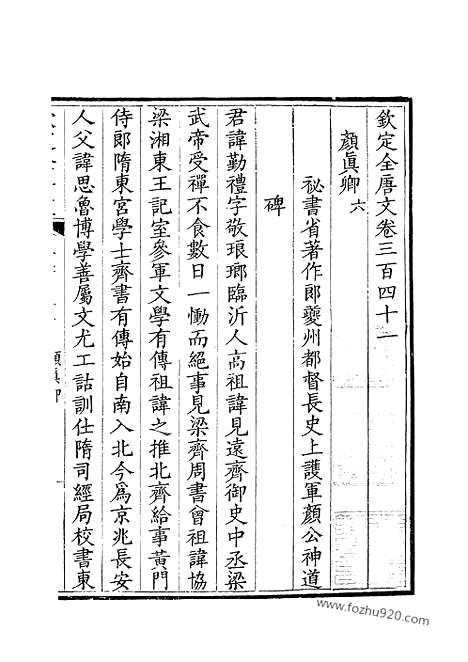 欽定全唐文卷三百四十一
顏真卿 六
秘書省著作郎夔州都督長史上護軍顏公神道
碑
君諱勤禮字敬琅瑯臨沂人高祖諱見遠齊御史中丞梁
武帝受禪不食數日一慟而絕事見梁齊周書曾祖諱協
梁湘東王記室參軍文學有傳祖諱之推北齊給事黃門
侍郎隋東宮學士齊書有傳始自南入北今為京兆長安
人父諱思魯博學善屬文尤工詁訓仕隋司經局校書東
顏真卿
www.fozhu920.com